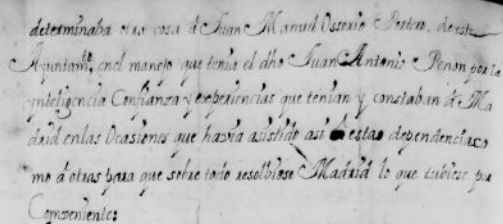 determinaba otra cosa d Juan Manuel Ossorio Portero, de este
Ayuntamto, en el manejo que tenia el dho Juan Antonio Penon por la
ynteligencia Confianza y experiencias que tenian y constaban d Ma
drid en las Ocasiones que havia asistido asi a estas dependencias co
mo á otras para que sobre todo resolbiese Madrid lo que tubiese por
Combeniente: